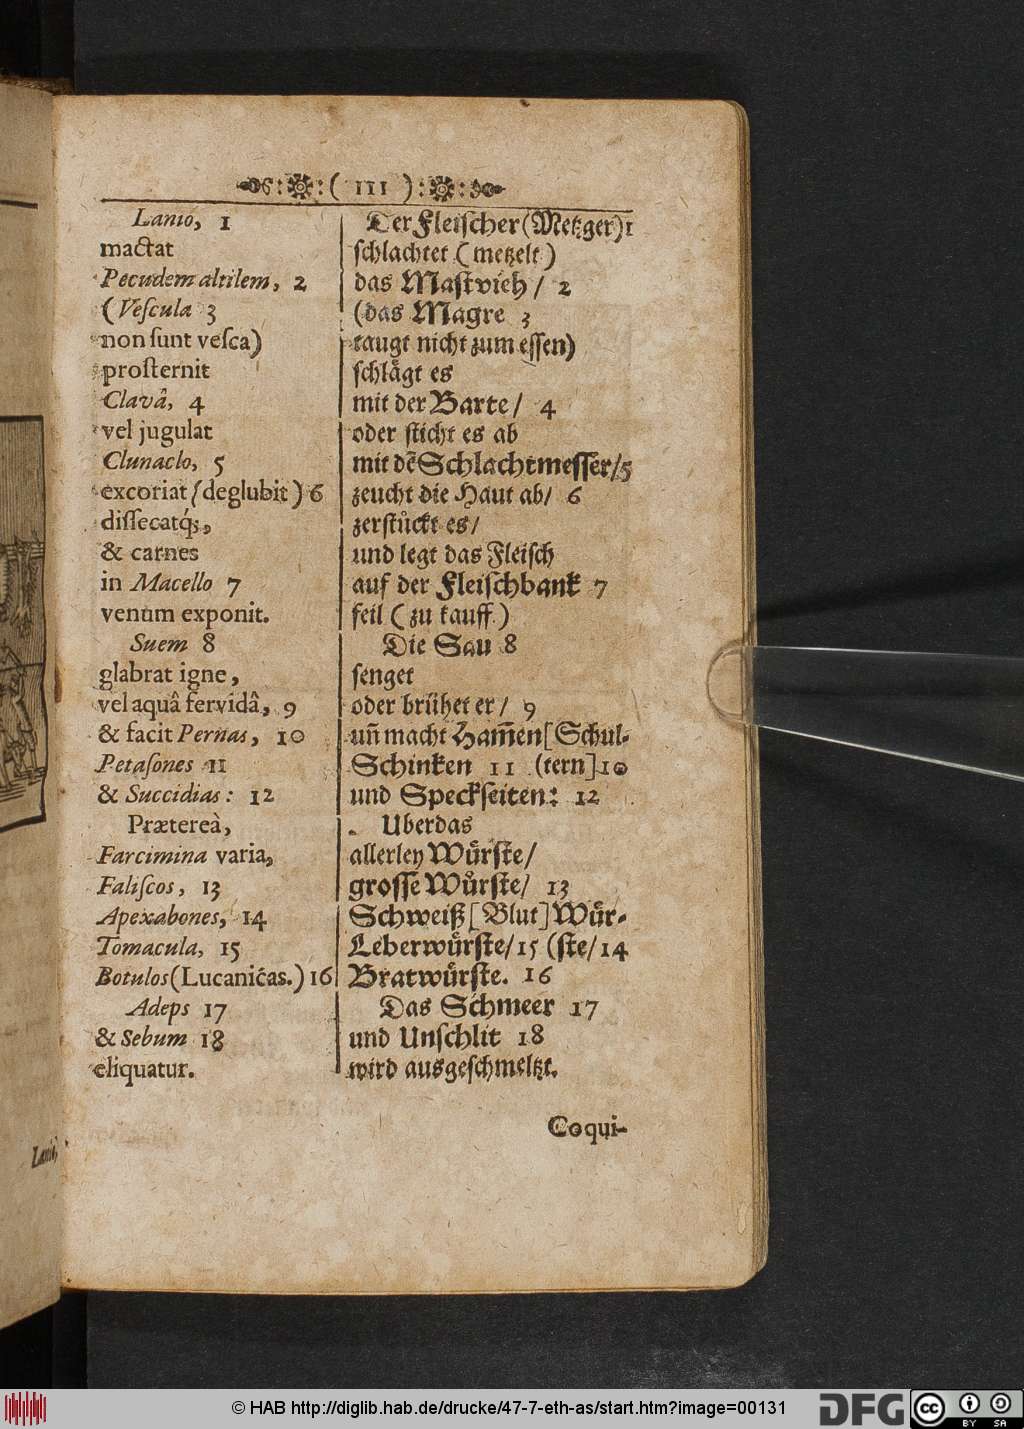 ( 111 )
Lanio, 1
mactat
Pecudem altilem, 2
(Veſcula 3
non ſunt veſca)
proſternit
Clavâ, 4
vel jugulat
Clunaclo, 5
excoriat (deglubit) 6
diſſecatq́;,
& carnes
in Macello 7
venum exponit.
Suem 8
glabrat igne,
vel aquâ fervidâ, 9
& facit Pernas, 10
Petaſones 11
& Succidias: 12
Prætereà,
Farcimina varia,
Faliſcos, 13
Apexabones, 14
Tomacula, 15
Botulos (Lucanicas.) 16
Adeps 17
& Sebum 18
eliquatur.
Der Fleiſcher (Metzger) 1
ſchlachtet (metzelt)
das Maſtvieh / 2
(das Magre 3
taugt nicht zum eſſen)
ſchlaͤgt es
mit der Barte / 4
oder ſticht es ab
mit dẽ Schlachtmeſſer / 5
zeucht die Haut ab / 6
zerſtuͤckt es /
und legt das Fleiſch
auf der Fleiſchbank 7
feil (zu kauff.)
Die Sau 8
ſenget
oder bruͤhet er / 9
uñ macht Ham̃en [Schul-
Schinken 11 (tern] 10
und Speckſeiten: 12
Uberdas
allerley Wuͤrſte /
groſſe Wuͤrſte / 13
Schweiß [Blut] Wuͤr-
Leberwuͤrſte / 15 (ſte / 14
Bratwuͤrſte. 16
Das Schmeer 17
und Unſchlit 18
wird ausgeſchmeltzt.
Coqui-
© HAB http://diglib.hab.de/drucke/47-7-eth-as/start.htm?image=00131
DFG
cc
BY SA